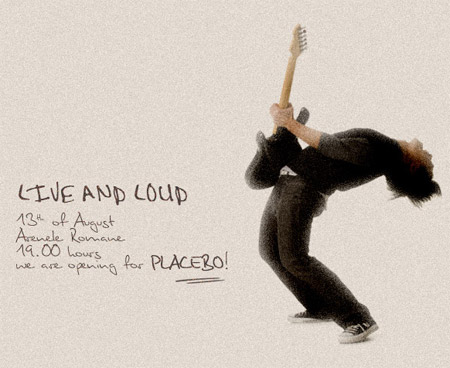 LIVE AND LOUD
13th of August
Arenele Romane
19.00 hours
we are opening for PLACEBO!